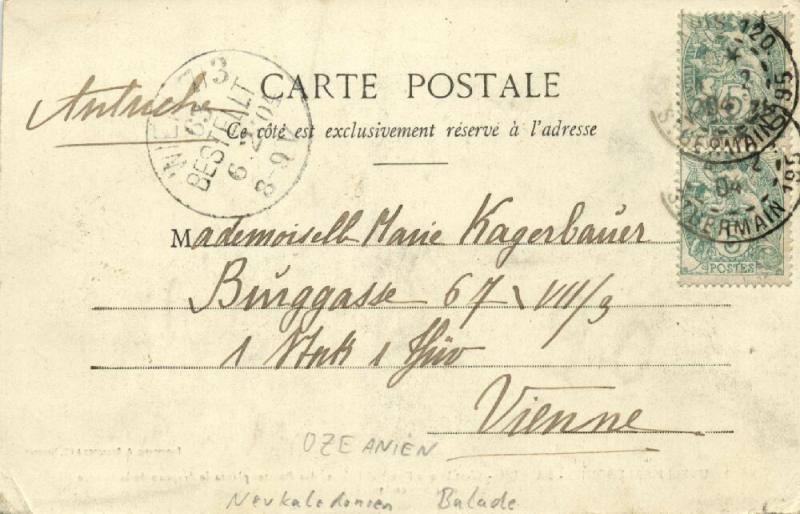 CARTE POSTALE
Autriche
Ce côté est exclusivement réservé à l'adresse
WIEN 7/3
63
BESTELLT
6. 2. 04
8-9 V
PARIS 120
2
04
5
BD ST GERMAIN 195
2
04
ST GERMAIN 195
5
POSTES
Mademoiselle Marie Kagerbauer
Burggasse 67 \ VII/3
1 Stock 1 Thür
Vienne
OZEANIEN
Neukaledonien Balade